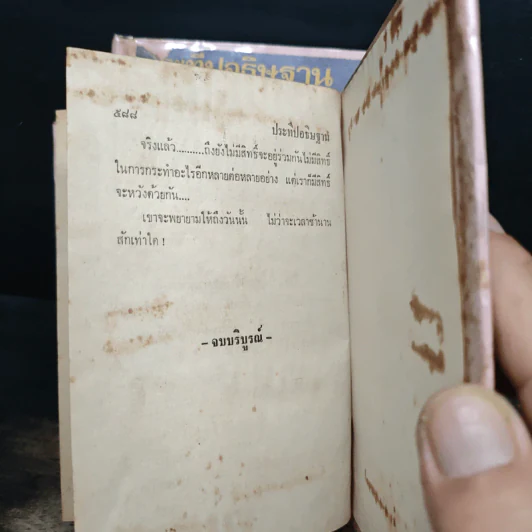 ประทีปอธิษฐาน
๕๘๘
ประทีปอธิษฐาน
จริงแล้ว.........ถึงยังไม่มีสิทธิ์จะอยู่ร่วมกันไม่มีสิทธิ์
ในการกระทำอะไรอีกหลายต่อหลายอย่าง แต่เราก็มีสิทธิ์
จะหวังด้วยกัน....
เขาจะพยายามให้ถึงวันนั้น ไม่ว่าจะเวลาช้านาน
สักเท่าใด !
- จบบริบูรณ์ -